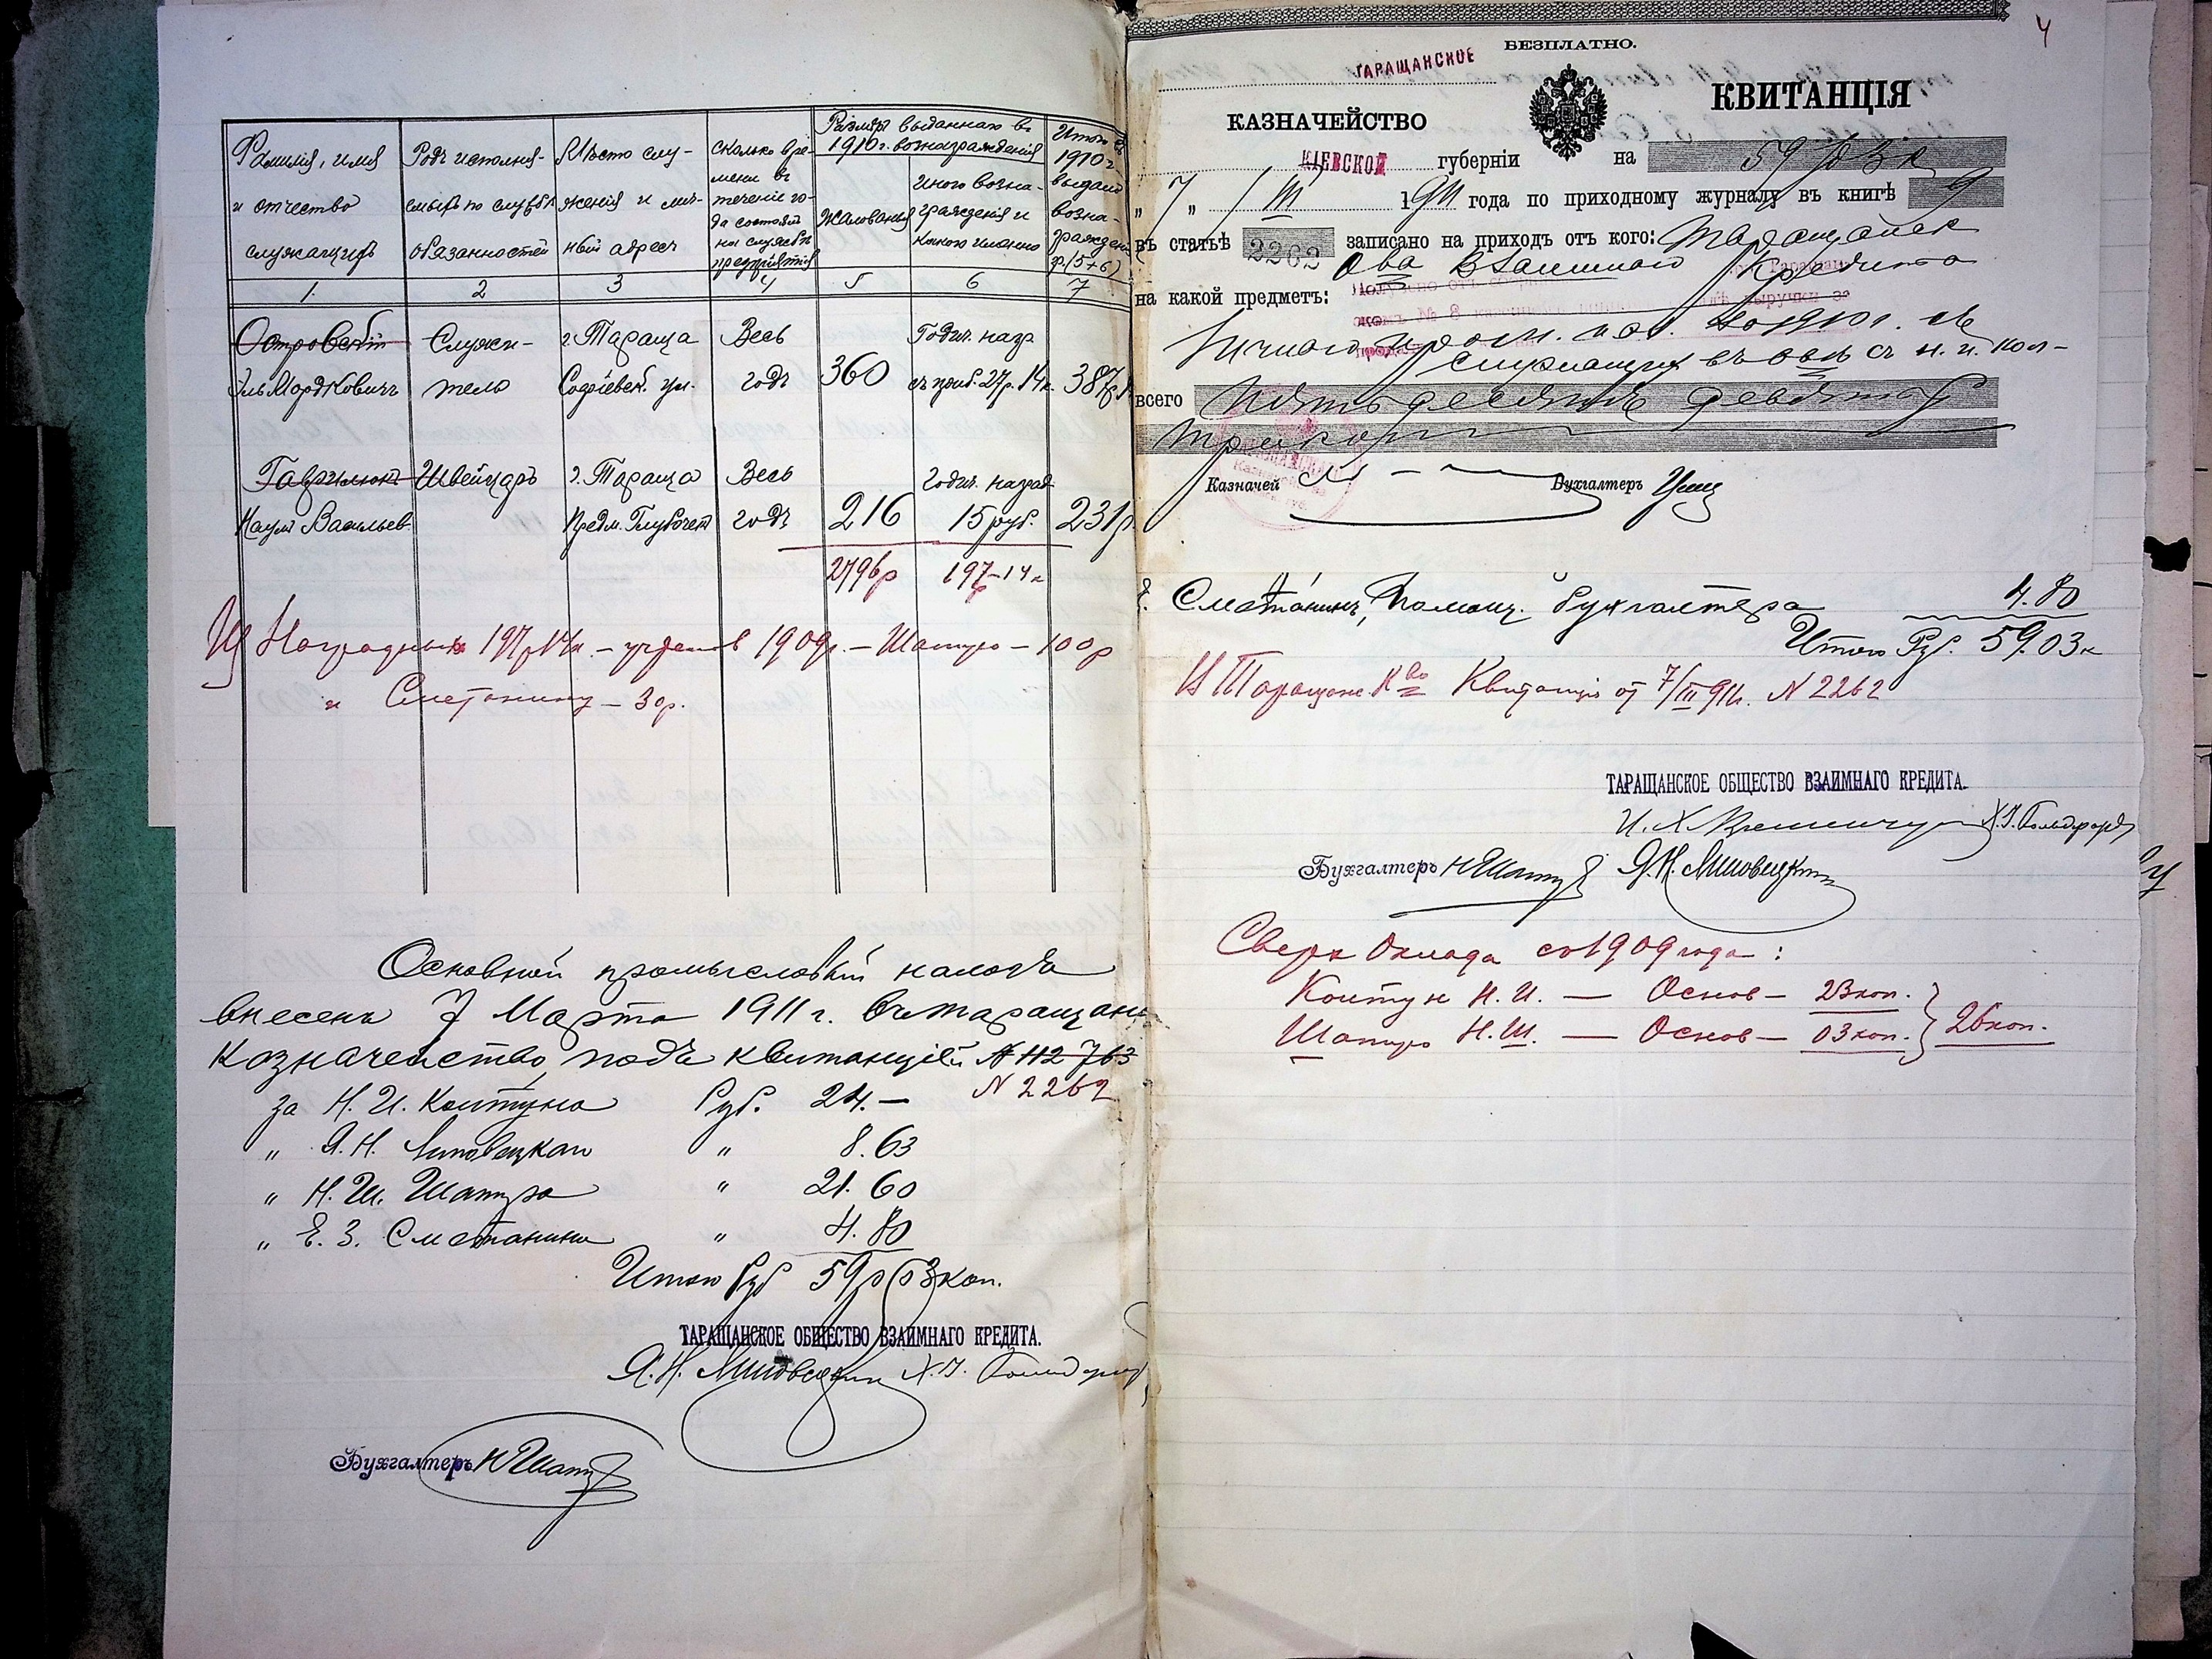 Фамилія, имя
и отчество
служащихъ
Родъ исполня-
емыхъ по службѣ
обязанностей
Мѣсто слу-
женія и лич-
ный адресъ
Сколько вре-
мени въ
теченіе го-
да состоялъ
на службѣ
предпріятія
Размѣръ выданнаго въ
1910 г. вознагражденія
Жалованья
Иного возна-
гражденія и
какого именно
Итого въ
1910 г.
выдано
возна-
гражден
гр. (5+6)
1. 2 3 4 5 6 7
Островскій Служи- г. Тараща Весь Годич. нагр
Эль Мордковичъ тель Софіевск. ул. годъ 360 съ приб. 27 р. 14 к. 387 р.
Гаврилюкъ Швейцаръ г. Тараща Весь Годич. наград
Наумъ Васильев. Предм. Глубочек годъ 216 15 руб. 231 р.
2796 р 197 р - 14 к
Из Наградных 197 р 14 к. - учтен в 1909 г. - Шапиро - 100 р
и Сметанину - 30 р.
Основной промысловый налогъ
внесенъ 7 Марта 1911 г. въ Таращан.
казначейство, подъ квитанціей № 112763
N 2262
за Н. И. Коптуна Руб. 24. —
„ Я. Н. Липовецкаго „ 8. 63
„ Н. Ш. Шапиро „ 21. 60
„ Е. З. Сметанина „ 4. 80
Итого Руб 59 р 03 коп.
ТАРАЩАНСКОЕ ОБЩЕСТВО ВЗАИМНАГО КРЕДИТА.
Я. Н. Липовецкій
Бухгалтеръ Н Шапиро
4
БЕЗПЛАТНО.
ТАРАЩАНСКОЕ
КАЗНАЧЕЙСТВО
КВИТАНЦІЯ
КІЕВСКОЙ губерніи на 59 р 03 к
„ 7 „ / III 1911 года по приходному журналу въ книгѣ 9
въ статьѣ 2262 записано на приходъ отъ кого: Таращанск
О-ва Взаимнаго Кредита
на какой предметъ:
личнаго пром. нал. за 1910 г. съ
служащихъ въ о-вѣ съ Н. И. Коп-
всего Пятьдесятъ девять р
три коп
Казначей Бухгалтеръ
Е. Сметанинъ, Помощ. бухгалтера 4. 80
Итого Руб. 59. 03 к
Квитанція от 7/III 911. N 2262
ТАРАЩАНСКОЕ ОБЩЕСТВО ВЗАИМНАГО КРЕДИТА.
Бухгалтеръ Н Шапиро Я. Н. Липовецкій
Сверх Оклада со 1909 года:
Коптун Н. И. — Основ — 23 коп.
Шапиро Н. Ш. — Основ — 03 коп. } 26 коп.